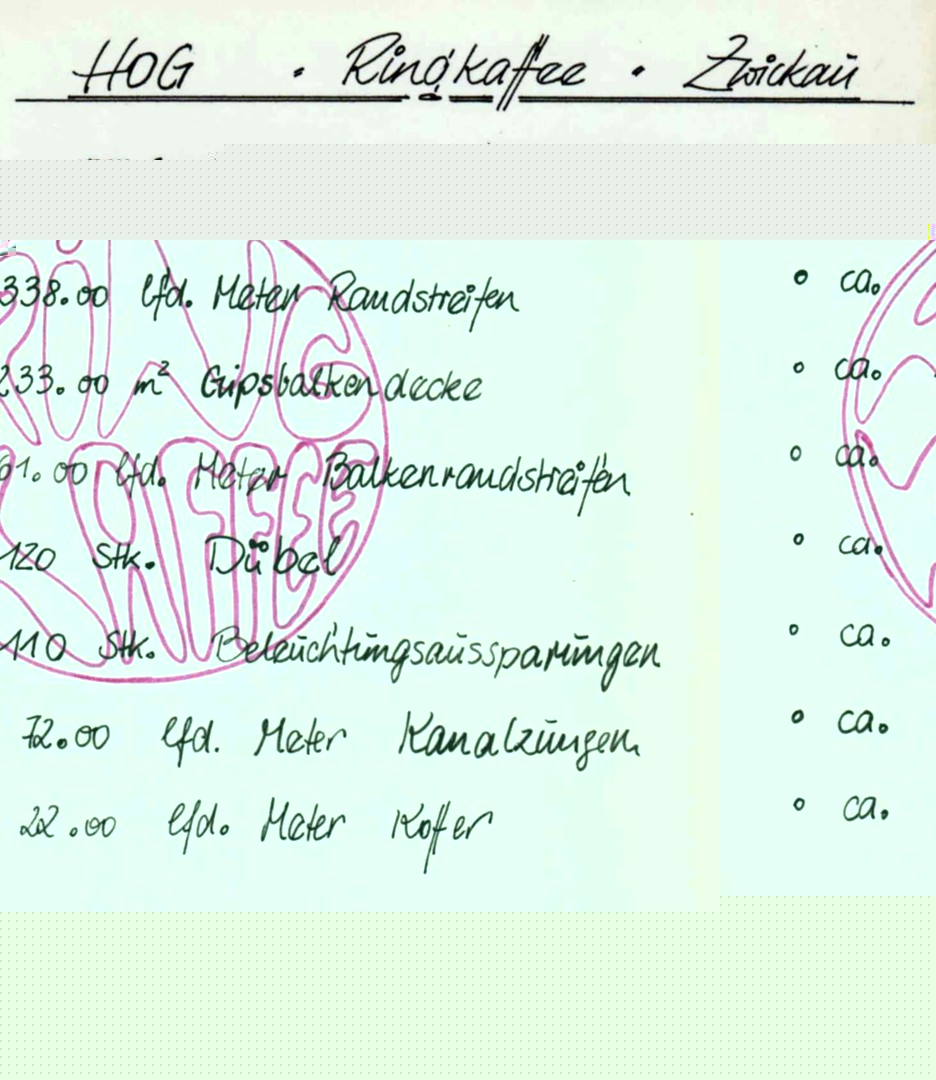 HOG • Ringkaffee • Zwickau
338.00 lfd. Meter Randstreifen ° ca.
233.00 m² Gipsbalkendecke ° ca.
61.00 lfd. Meter Balkenrandstreifen ° ca.
120 Stk. Dübel ° ca.
110 Stk. Beleuchtungsaussparungen ° ca.
72.00 lfd. Meter Kanalzungen ° ca.
22.00 lfd. Meter Koffer ° ca.
RING
KAFFEE